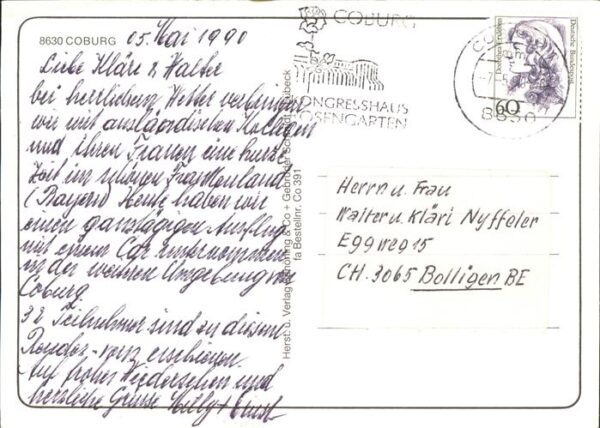 8630 COBURG 05. Mai 1990
Liebe Kläre & Walter
bei herrlichem Wetter verbringen
wir mit ausländischen Kollegen
und ihren Frauen eine kurze
Zeit im schönen Frankenland
(Bayern) Heute haben wir
einen ganztägigen Ausflug
mit einem Car unternommen
in der weiteren Umgebung von
Coburg.
32 Teilnehmer sind zu diesem
Rendez-vous erschienen.
Auf frohes Wiedersehen und
herzliche Grüsse Milly + Ernst
COBURG
KONGRESSHAUS
ROSENGARTEN
60
Deutsche Bundespost
Herrn u. Frau
Walter u. Kläri Nyffeler
Eggweg 15
CH. 3065 Bolligen BE
Herst. u. Verlag Schöning & Co + Gebrüder Schmidt, Lübeck
fa Bestellnr. Co 391